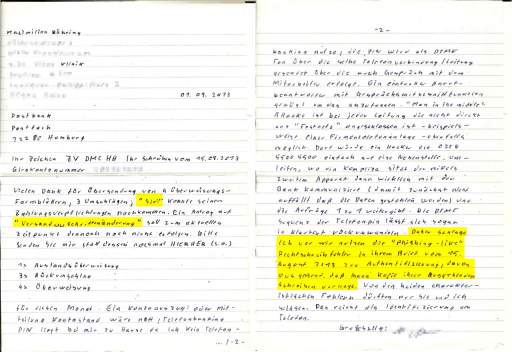 Maximilian Bähring
01.09.2013
Postbank
Postfach
22285 Hamburg
Ihr Zeichen ZV DMC HB Ihr Schreiben vom 15.08.2013
Girokontonummer
Vielen Dank für Übersendung von 4 Überweisungs-
Formblättern, 3 Umschlägen, "Sie" könnte seinen
Zahlungsverpflichtungen nachkommen. Ein Antrag auf
soll zum aktuellen
Zeitpunkt dennoch noch nicht erfolgen. Bitte
senden Sie mir stattdessen nochmal HIERHER (s.o.)
1x Auslandsüberweisung
3x Rückumschläge
4x Überweisung
für diesen Monat. Ein Kontoauszug oder Mit-
teilung Kontostand wäre nett, Telefonbanking
PIN liegt bei mir zu Hause da ich kein Telefon-
...1-2-
-2-
banking nutze, die PIN wird als DTMF
Ton über die selbe Telefonverbindung/Leitung
gesendet über die auch Gespräch mit dem
Mitarbeiter erfolgt. Ein einfacher Anruf-
beantworter mit Gesprächsmitschneidfunktion
genügt um das abzufangen. "Man in the middle"
Attacks ist bei jeder Leitung die nicht direkt
ans "Festnetz" angeschlossen ist - beispiels-
weise einer Firmentelefonanlage - ebenfalls
möglich. Dort würde ein Hacker die 0228
5500 5500 einfach auf eine Nebenstelle um-
leiten, wo ein Komplize sitzt der mittels
zweitem Apparat dann wirklich mit der
Bank kommuniziert (damit zunächst nicht
auffällt daß die Daten gestohlen werden) und
die Aufträge 1:1 weitergibt. Die DTMF
Sequenz der Telefonpin lässt sich sogar
in Klartext rückumwandeln. Daher schlage
ich vor wir nutzen die "Phishing-like"
Rechtschreibfehler in Ihrem Brief vom 15.
August 2013 zur Authentifizierung, davon
ausgehend, daß
Schreiben vorlege. Von den beiden charakter-
istischen Fehlern dürften nur Sie und ich
wissen. Das reicht als Identifizierung am
Telefon.